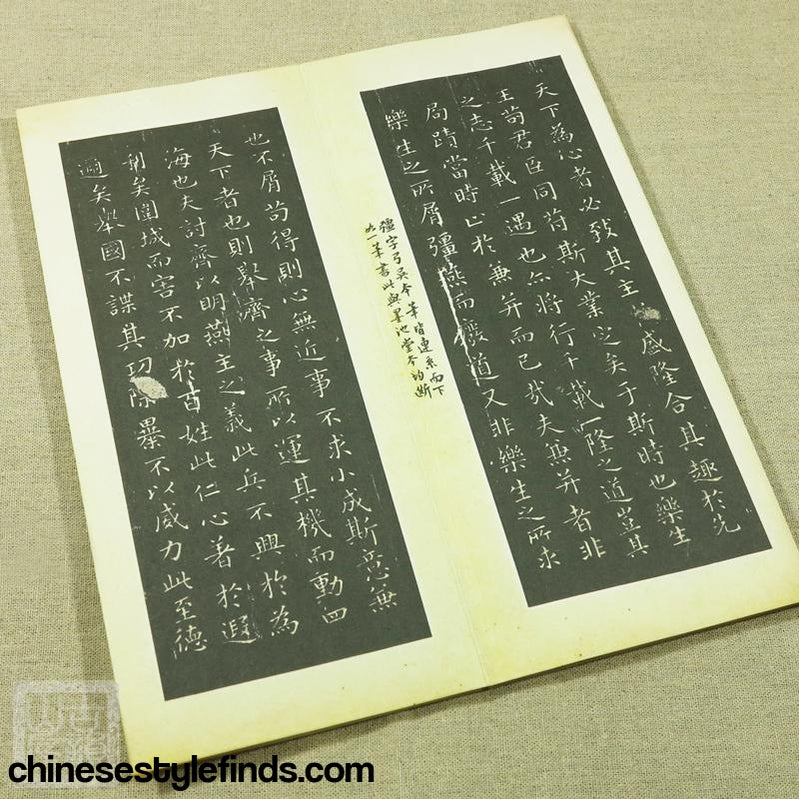 天下為心者必致其主盛隆合其趣於先
王苟君臣同苻斯大業定矣于斯時也樂生
之志千載一遇也亦將行千載一隆之道豈其
局蹟當時止於兼并而已哉夫兼并者非
樂生之所屑彊燕而廢道又非樂生之所求
彊字弓吳本筆皆連系而下
此一筆書此與墨池堂本均斷
也不屑苟得則心無近事不求小成斯意無
天下者也則舉濟之事所以運其機而動四
海也夫討齊以明燕主之義此兵不興於為
利矣圍城而害不加於百姓此仁心著於遐
邇矣舉國不謀其功除暴不以威力此至德
chinesestylefinds.com